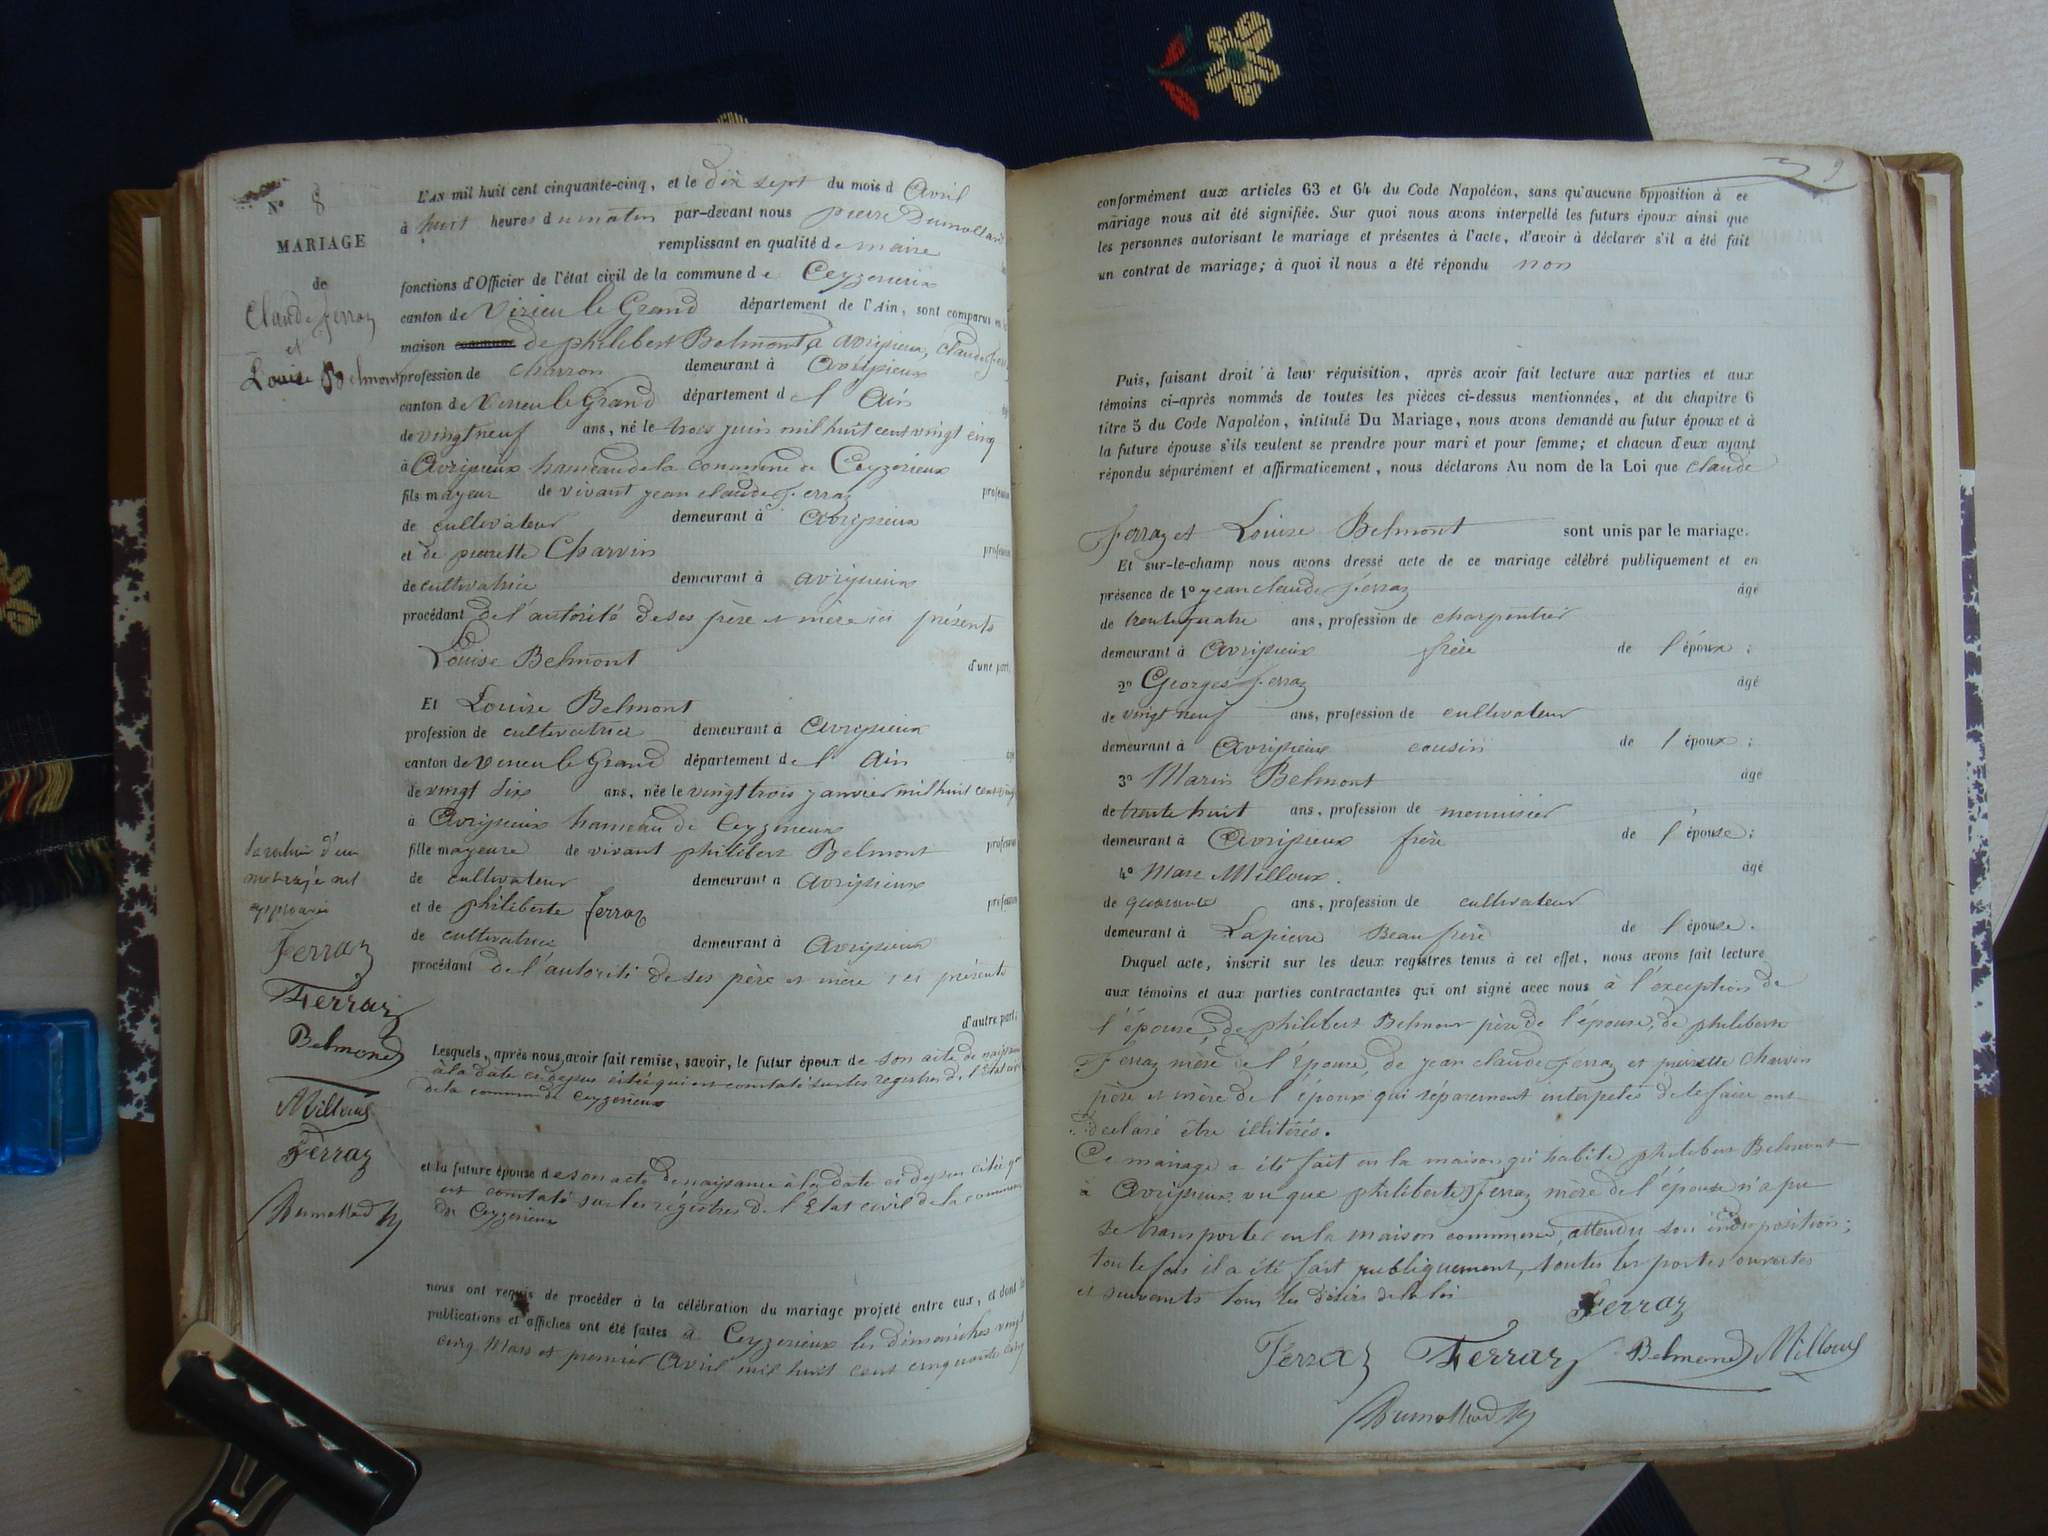 N° 8
MARIAGE
de
Claude Ferraz
et
Louise Belmont
L'AN mil huit cent cinquante-cinq, et le dix sept du mois d Avril
à huit heures du matin par-devant nous pierre Dumollard
remplissant en qualité de maire
fonctions d'Officier de l'état civil de la commune de Ceyzerieux
canton de Virieu le Grand département de l'Ain, sont comparus en la
maison de philibert Belmont, à avripieux, Claude Ferraz
profession de charron demeurant à Avripieux
canton de Virieu le Grand département de l' Ain
de vingt neuf ans, né le trois juin mil huit cent vingt cinq
à Avripieux hameau de la commune de Ceyzerieux
fils mayeur de vivant jean claude Ferraz profession
de cultivateur demeurant à Avripieux
et de pierrette Charvin profession
de cultivatrice demeurant à avripieux
procédant de l'autorité de ses père et mère ici présents
Louise Belmont
d'une part,
Et Louise Belmont
profession de cultivatrice demeurant à Avripieux
canton de Virieu le Grand département de l' Ain
de vingt six ans, née le vingt trois janvier mil huit cent vingt
à Avripieux hameau de Ceyzerieux
fille mayeure de vivant philibert Belmont profession
de cultivateur demeurant à avripieux
et de philiberte ferraz profession
de cultivatrice demeurant à Avripieux
procédant de l'autorité de ses père et mère ici présents
d'autre part;
Lesquels, après nous avoir fait remise, savoir, le futur époux de son acte de naissance
à la date ci dessus citée qui est constaté sur les registres de l'Etat civil
de la commune de Ceyzerieux
et la future épouse de son acte de naissance à la date ci dessus citée qui
est constaté sur les régistres de l'Etat civil de la commune
de Ceyzerieux
nous ont requis de procéder à la célébration du mariage projeté entre eux, et dont les
publications et affiches ont été faites à Ceyzerieux les dimanches vingt
cinq Mars et premier Avril mil huit cent cinquante cinq
la rature d'un
mot rayé nul
approuvée
Ferraz
Ferraz
Belmond
Milloux
Ferraz
Dumollard
9
conformément aux articles 63 et 64 du Code Napoléon, sans qu'aucune opposition à ce
mariage nous ait été signifiée. Sur quoi nous avons interpellé les futurs époux ainsi que
les personnes autorisant le mariage et présentes à l'acte, d'avoir à déclarer s'il a été fait
un contrat de mariage; à quoi il nous a été répondu non
Puis, faisant droit à leur réquisition, après avoir fait lecture aux parties et aux
témoins ci-après nommés de toutes les pièces ci-dessus mentionnées, et du chapitre 6
titre 5 du Code Napoléon, intitulé Du Mariage, nous avons demandé au futur époux et à
la future épouse s'ils veulent se prendre pour mari et pour femme; et chacun d'eux ayant
répondu séparément et affirmativement, nous déclarons Au nom de la Loi que claude
Ferraz et Louise Belmont sont unis par le mariage.
Et sur-le-champ nous avons dressé acte de ce mariage célébré publiquement et en
présence de 1° jean claude Ferraz âgé
de trente quatre ans, profession de charpentier
demeurant à Avripieux frère de l'époux;
2° Georges Ferraz âgé
de vingt neuf ans, profession de cultivateur
demeurant à Avripieux cousin de l'époux;
3° Marin Belmont âgé
de trente huit ans, profession de menuisier
demeurant à Avripieux frère de l'épouse;
4° Marc Milloux. âgé
de quarante ans, profession de cultivateur
demeurant à Lapierre Beau frère de l'épouse.
Duquel acte, inscrit sur les deux registres tenus à cet effet, nous avons fait lecture
aux témoins et aux parties contractantes qui ont signé avec nous à l'exception de
l'épouse, de philibert Belmont père de l'épouse, de philiberte
Ferraz mère de l'épouse, de jean claude Ferraz et pierrette Charvin
père et mère de l'époux qui séparément interpelés de le faire ont
déclaré être illitérés.
Ce mariage a été fait en la maison qu'habite philibert Belmont
à Avripieux, vu que philiberte Ferraz mère de l'épouse n'a pu
se transporter en la maison commune, attendu son indisposition;
toutefois il a été fait publiquement, toutes les portes ouvertes
et suivants tous les désirs de la loi
Ferraz
Ferraz Ferraz Belmond Milloux
Dumollard